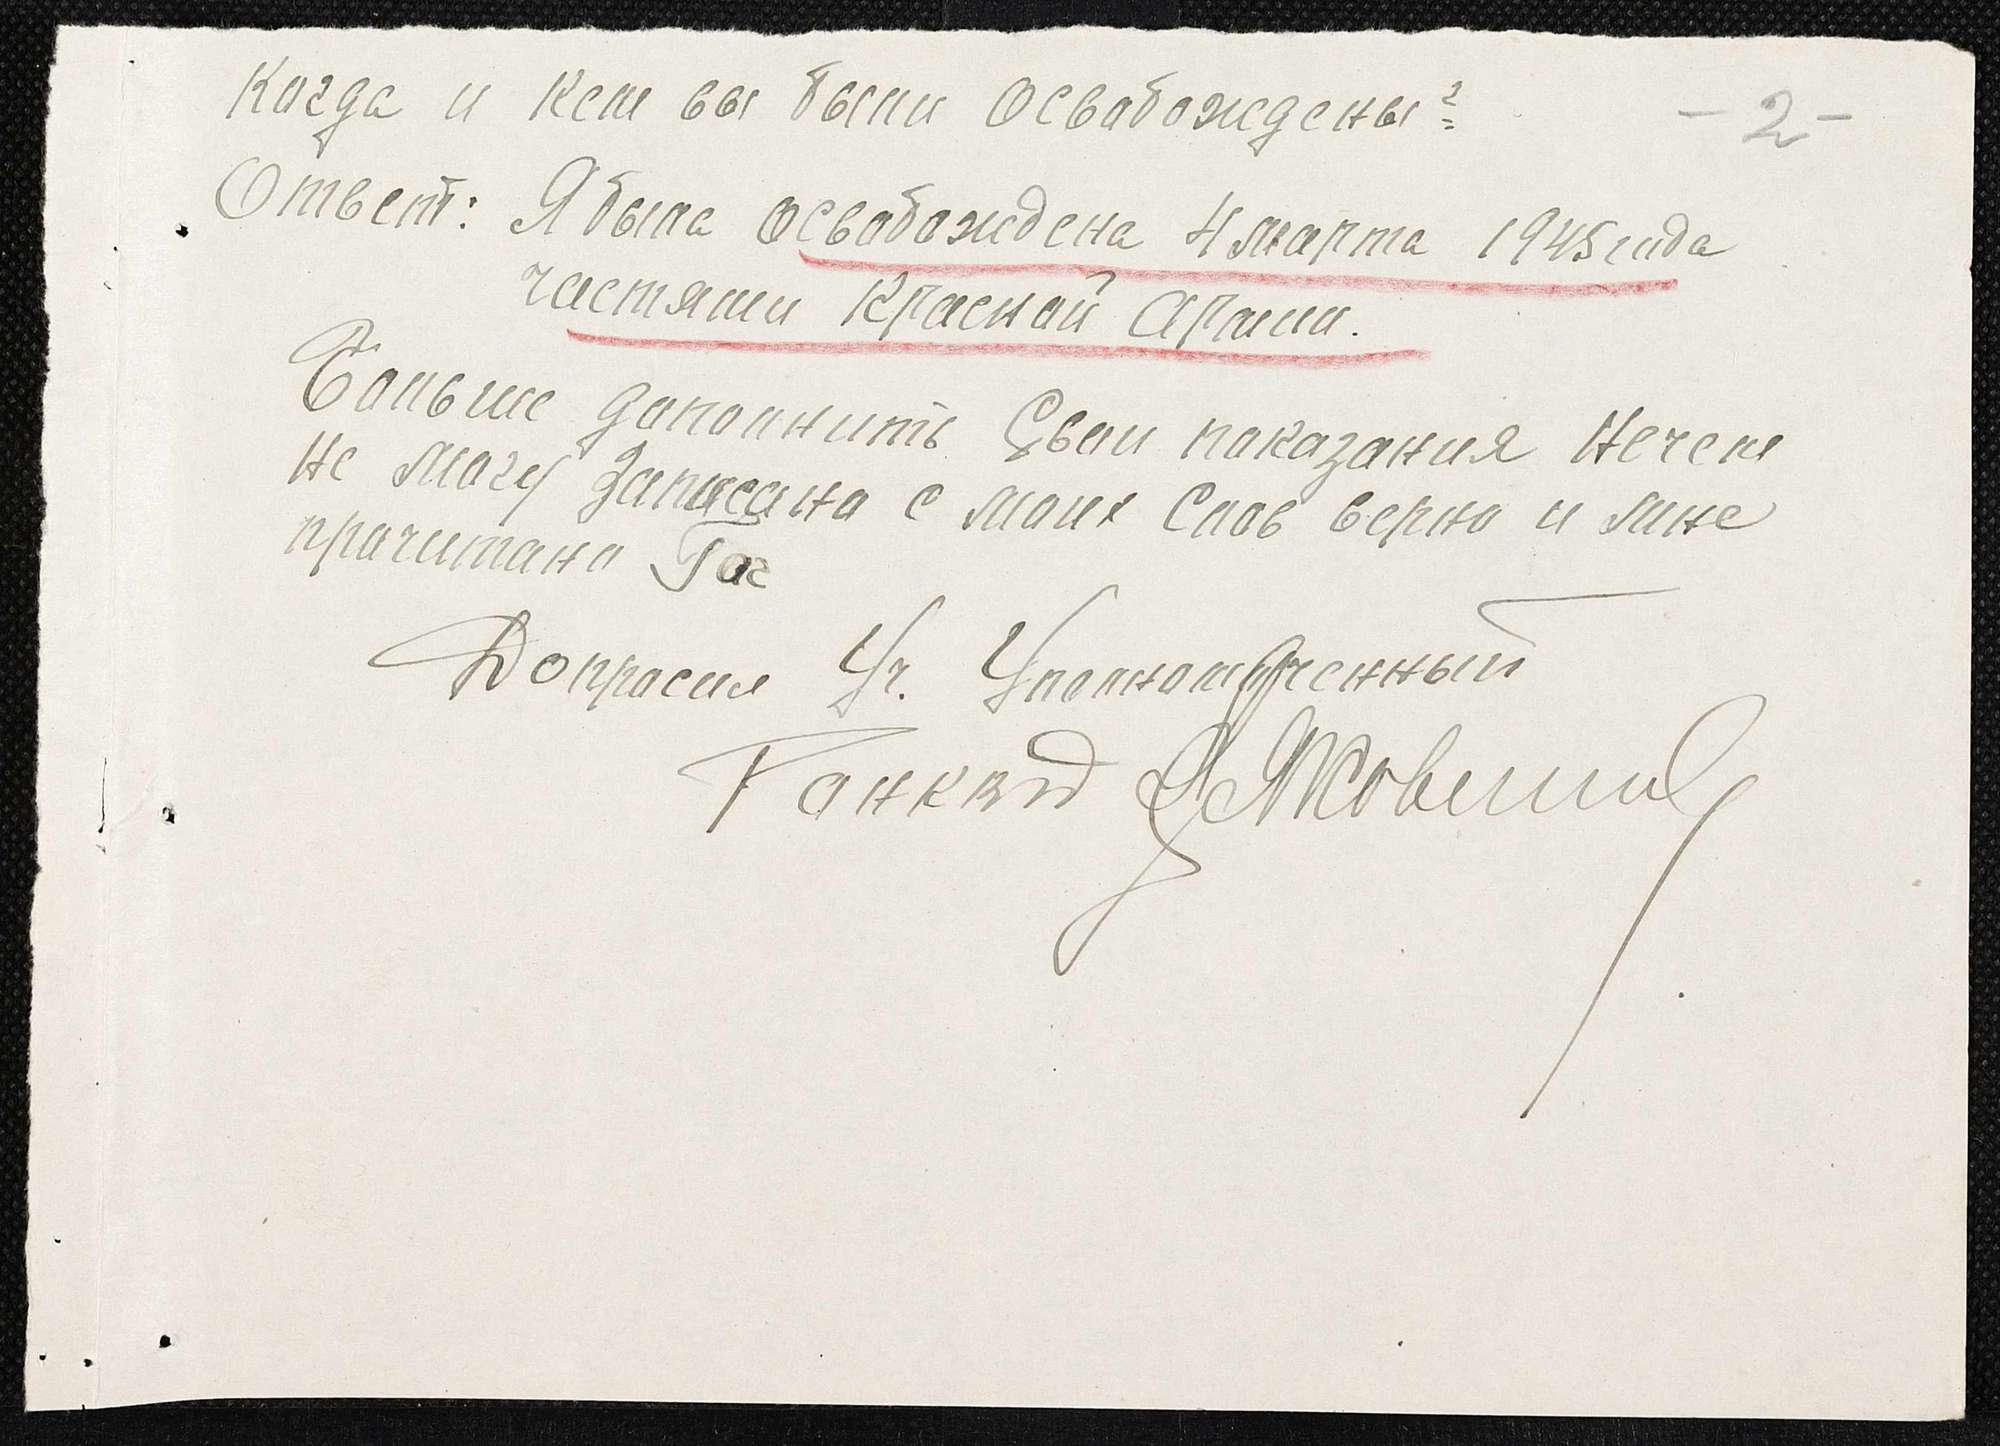 Когда и Кем вы были Освабождены?
- 2 -
Ответ: Я была Освабождена 4 марта 1945 года
частями Красной Армии.
Больше дополнить Свои показания Нечем
не могу Записано с моих Слов верно и мне
прочитано
Допросил Уч. Уполномоченный